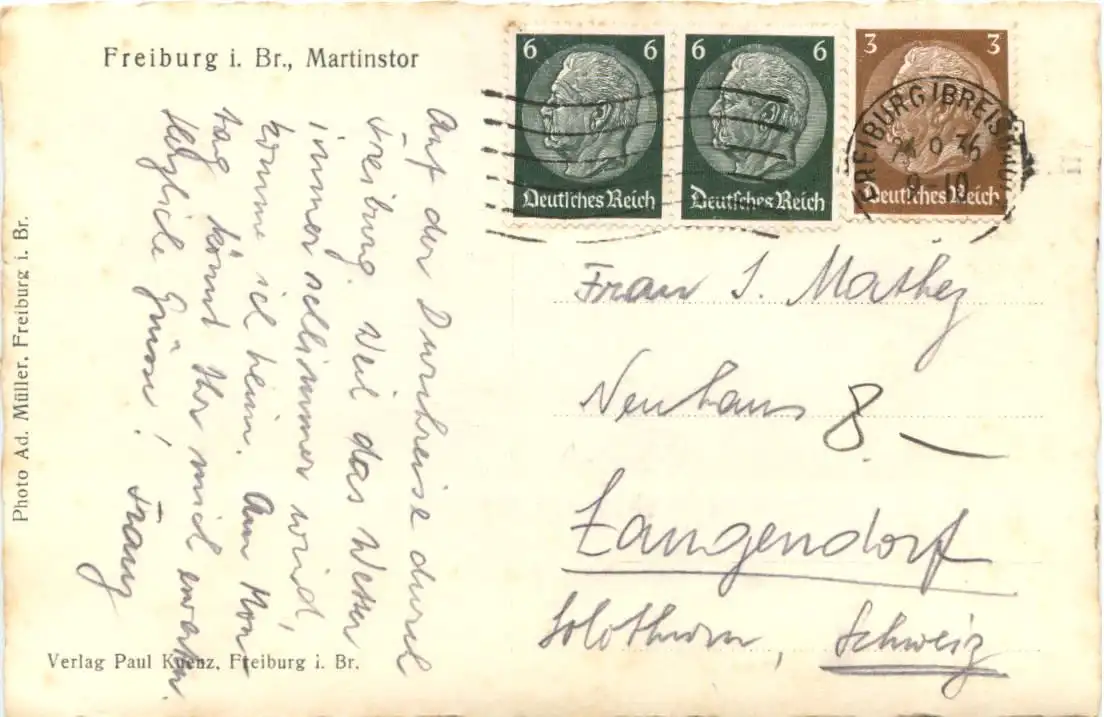 Freiburg i. Br., Martinstor
Auf der Durchreise durch
Freiburg. Weil das Wetter
immer schlimmer wird,
komme ich heim. Am Mon-
tag könnt Ihr mich erwarten.
Herzliche Grüsse! Franz
6 6
Deutsches Reich
6 6
Deutsches Reich
3 3
Deutsches Reich
FREIBURG (BREISGAU)
9. 36
9-10
Frau J. Mathey
Neuhaus 8. —
Langendorf
Solothurn, Schweiz
Photo Ad. Müller, Freiburg i. Br.
Verlag Paul Kuenz, Freiburg i. Br.